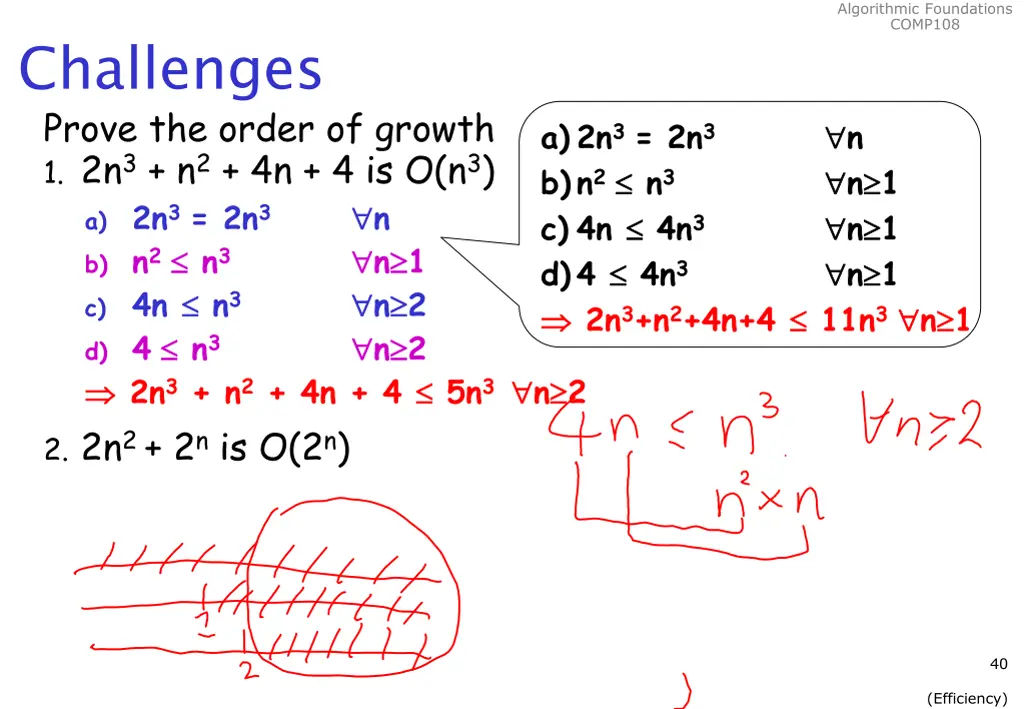 Algorithmic Foundations
COMP108
Challenges
Prove the order of growth
1. 2n³ + n² + 4n + 4 is O(n³)
a) 2n³ = 2n³ ∀n
b) n² ≤ n³ ∀n≥1
c) 4n ≤ n³ ∀n≥2
d) 4 ≤ n³ ∀n≥2
⇒ 2n³ + n² + 4n + 4 ≤ 5n³ ∀n≥2
2. 2n² + 2ⁿ is O(2ⁿ)
a) 2n³ = 2n³ ∀n
b) n² ≤ n³ ∀n≥1
c) 4n ≤ 4n³ ∀n≥1
d) 4 ≤ 4n³ ∀n≥1
⇒ 2n³+n²+4n+4 ≤ 11n³ ∀n≥1
4n ≤ n³ ∀n≥2
n² × n
1
2
40
(Efficiency)